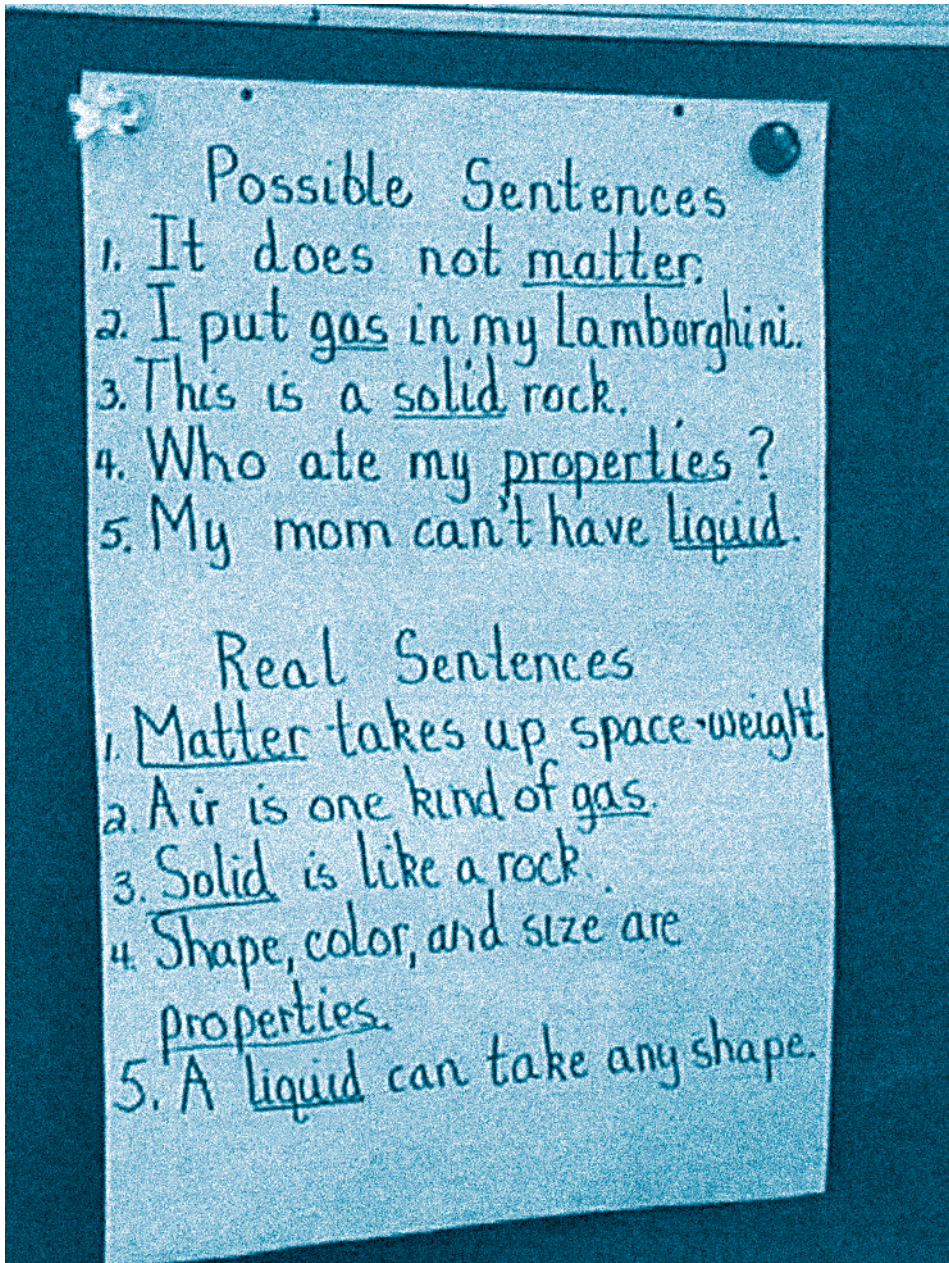 Possible Sentences
1. It does not matter.
2. I put gas in my Lamborghini.
3. This is a solid rock.
4. Who ate my properties?
5. My mom can't have liquid.
Real Sentences
1. Matter takes up space weight.
2. Air is one kind of gas.
3. Solid is like a rock.
4. Shape, color, and size are
properties.
5. A liquid can take any shape.